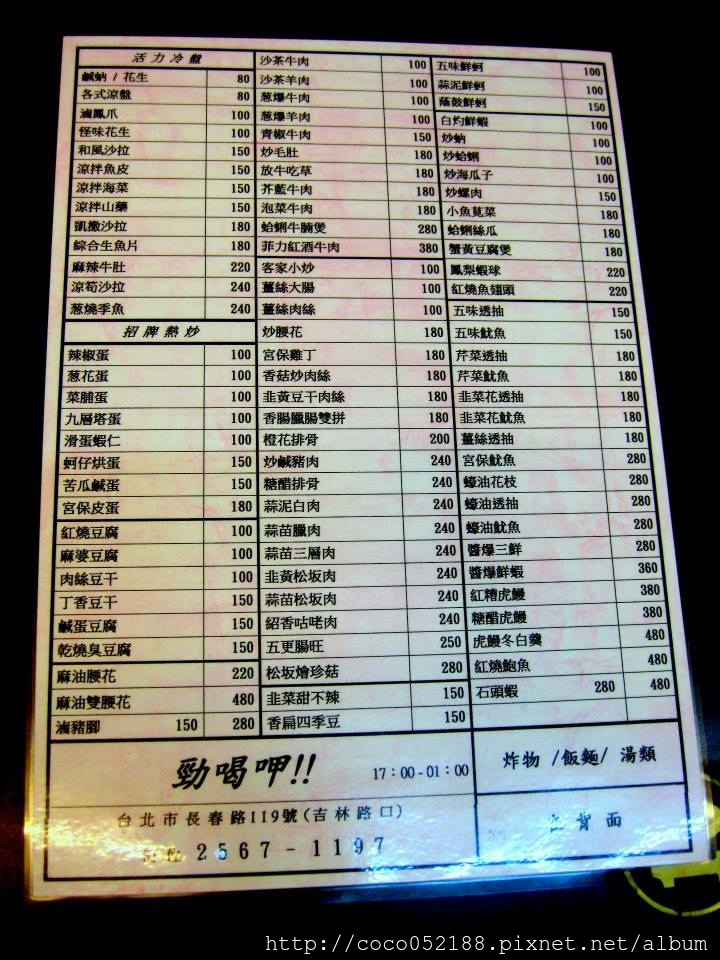 活力冷盤
鹹蚋 / 花生 80
各式涼盤 80
滷鳳爪 100
怪味花生 100
和風沙拉 150
涼拌魚皮 150
涼拌海菜 150
涼拌山藥 150
凱撒沙拉 180
綜合生魚片 180
麻辣牛肚 220
涼筍沙拉 240
葱燒季魚 240
招牌熱炒
辣椒蛋 100
葱花蛋 100
菜脯蛋 100
九層塔蛋 100
滑蛋蝦仁 100
蚵仔烘蛋 150
苦瓜鹹蛋 150
宮保皮蛋 180
紅燒豆腐 100
麻婆豆腐 100
肉絲豆干 100
丁香豆干 150
鹹蛋豆腐 150
乾燒臭豆腐 150
麻油腰花 220
麻油雙腰花 480
滷豬腳 150 280
沙茶牛肉 100
沙茶羊肉 100
葱爆牛肉 100
葱爆羊肉 100
青椒牛肉 150
炒毛肚 180
放牛吃草 180
芥藍牛肉 180
泡菜牛肉 180
蛤蜊牛腩煲 280
菲力紅酒牛肉 380
客家小炒 100
薑絲大腸 100
薑絲肉絲 100
炒腰花 180
宮保雞丁 180
香菇炒肉絲 180
韭黃豆干肉絲 180
香腸臘腸雙拼 180
橙花排骨 200
炒鹹豬肉 240
糖醋排骨 240
蒜泥白肉 240
蒜苗臘肉 240
蒜苗三層肉 240
韭黃松坂肉 240
蒜苗松坂肉 240
紹香咕咾肉 240
五更腸旺 250
松坂燴珍菇 280
韭菜甜不辣 150
香扁四季豆 150
五味鮮蚵 100
蒜泥鮮蚵 100
蔭鼓鮮蚵 150
白灼鮮蝦 100
炒蚋 100
炒蛤蜊 100
炒海瓜子 100
炒螺肉 150
小魚莧菜 180
蛤蜊絲瓜 180
蟹黃豆腐煲 180
鳳梨蝦球 220
紅燒魚翅頭 220
五味透抽 150
五味魷魚 150
芹菜透抽 180
芹菜魷魚 180
韭菜花透抽 180
韭菜花魷魚 180
薑絲透抽 180
宮保魷魚 280
蠔油花枝 280
蠔油透抽 280
蠔油魷魚 280
醬爆三鮮 280
醬爆鮮蝦 360
紅糟虎鰻 380
糖醋虎鰻 380
虎鰻冬白羹 480
紅燒鮑魚 480
石頭蝦 280 480
勁喝呷!! 17:00-01:00
台北市長春路119號(吉林路口)
2567-1197
炸物 /飯麵/ 湯類
背面
http://coco052188.pixnet.net/album